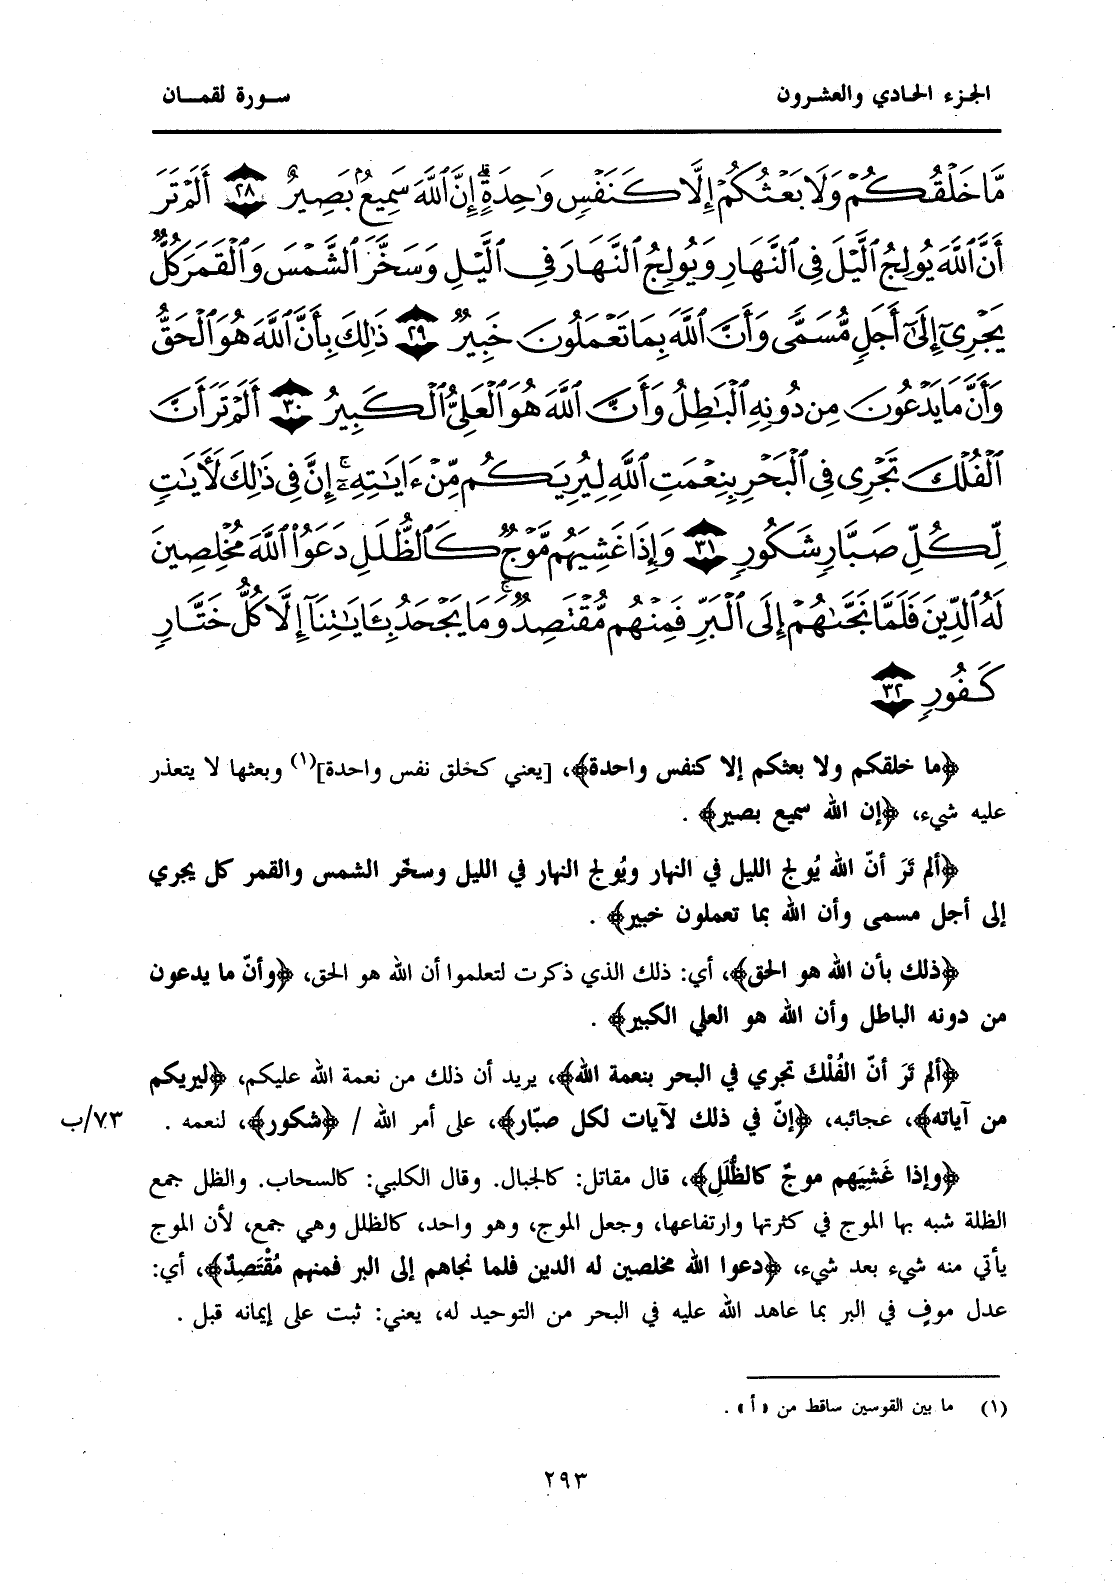 الجزء الحادي والعشرون
سورة لقمان
مَّا خَلْقُكُمْ وَلَا بَعْثُكُمْ إِلَّا كَنَفْسٍ وَٰحِدَةٍ ۗ إِنَّ ٱللَّهَ سَمِيعٌۢ بَصِيرٌ ٢٨ أَلَمْ تَرَ
أَنَّ ٱللَّهَ يُولِجُ ٱلَّيْلَ فِى ٱلنَّهَارِ وَيُولِجُ ٱلنَّهَارَ فِى ٱلَّيْلِ وَسَخَّرَ ٱلشَّمْسَ وَٱلْقَمَرَ كُلٌّ
يَجْرِىٓ إِلَىٰٓ أَجَلٍ مُّسَمًّى وَأَنَّ ٱللَّهَ بِمَا تَعْمَلُونَ خَبِيرٌ ٢٩ ذَٰلِكَ بِأَنَّ ٱللَّهَ هُوَ ٱلْحَقُّ
وَأَنَّ مَا يَدْعُونَ مِن دُونِهِ ٱلْبَٰطِلُ وَأَنَّ ٱللَّهَ هُوَ ٱلْعَلِىُّ ٱلْكَبِيرُ ٣٠ أَلَمْ تَرَ أَنَّ
ٱلْفُلْكَ تَجْرِى فِى ٱلْبَحْرِ بِنِعْمَتِ ٱللَّهِ لِيُرِيَكُم مِّنْ ءَايَٰتِهِۦٓ ۚ إِنَّ فِى ذَٰلِكَ لَءَايَٰتٍ
لِّكُلِّ صَبَّارٍ شَكُورٍ ٣١ وَإِذَا غَشِيَهُم مَّوْجٌ كَٱلظُّلَلِ دَعَوُا۟ ٱللَّهَ مُخْلِصِينَ
لَهُ ٱلدِّينَ فَلَمَّا نَجَّىٰهُمْ إِلَى ٱلْبَرِّ فَمِنْهُم مُّقْتَصِدٌ ۚ وَمَا يَجْحَدُ بِـَٔايَٰتِنَآ إِلَّا كُلُّ خَتَّارٍ
كَفُورٍ ٣٢
﴿ما خلقكم ولا بعثكم إلا كنفس واحدة﴾، [يعني كخلق نفس واحدة](١) وبعثها لا يتعذر
عليه شيء، ﴿إن الله سميع بصير﴾ .
﴿ألم تَرَ أنّ الله يُولج الليل في النهار ويُولج النهار في الليل وسخّر الشمس والقمر كل يجري
إلى أجل مسمى وأن الله بما تعملون خبير﴾ .
﴿ذلك بأن الله هو الحق﴾، أي: ذلك الذي ذكرت لتعلموا أن الله هو الحق، ﴿وأنّ ما يدعون
من دونه الباطل وأن الله هو العلي الكبير﴾ .
﴿ألم تَرَ أنّ الفُلْكَ تجري في البحر بنعمة الله﴾، يريد أن ذلك من نعمة الله عليكم، ﴿ليريكم
من آياته﴾، عجائبه، ﴿إنّ في ذلك لآيات لكل صبّار﴾، على أمر الله / ﴿شكور﴾، لنعمه . ٧٣/ب
﴿وإذا غَشِيَهم موجٌ كالظُّلَلِ﴾، قال مقاتل: كالجبال. وقال الكلبي: كالسحاب. والظل جمع
الظلة شبه بها الموج في كثرتها وارتفاعها، وجعل الموج، وهو واحد، كالظلل وهي جمع، لأن الموج
يأتي منه شيء بعد شيء، ﴿دعوا الله مخلصين له الدين فلما نجاهم إلى البر فمنهم مُقْتَصِدٌ﴾، أي:
عدل موفٍ في البر بما عاهد الله عليه في البحر من التوحيد له، يعني: ثبت على إيمانه قبل .
(١) ما بين القوسين ساقط من «أ» .
٢٩٣